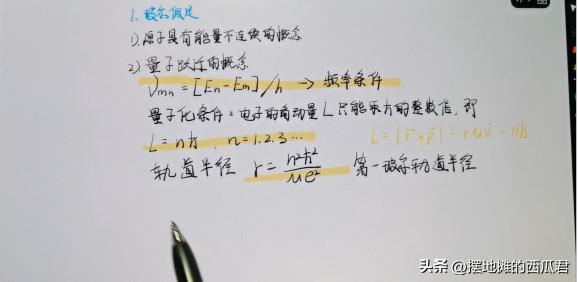 1. 玻尔假定
1) 原子具有能量不连续的概念
2) 量子跃迁的概念
νmn = [En-Em]/h → 频率条件
量子化条件:电子的角动量L只能取ħ的整数倍,即
L = nħ, n = 1.2.3… L = |r⃗×p⃗| = rμυ = nħ
轨道半径 r = n²ħ²/μe² 第一玻尔轨道半径
头条 @摆地摊的西瓜君